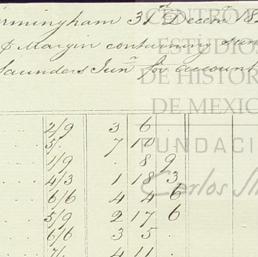 rmingham 31st Decemr 18
& Margin containing
Saunders Junr for account
CENTRO
ESTUDIOS
DE HISTOR
DE MEXIC
FUNDACI
Carlos Sl
2/9 3 6
5/. 7 10
1/9 . 8 9
4/3 1 18 3
6/6 4 4 6
5/9 2 17 6
6/6 3 5 .
7/. 4 11 .